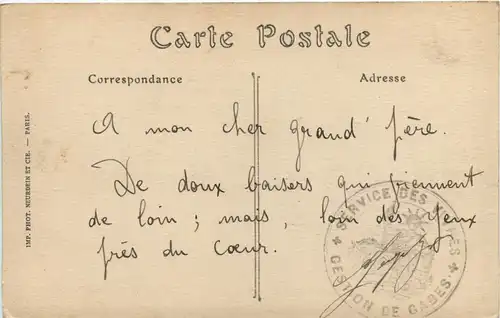 Carte Postale
Correspondance
Adresse
A mon cher grand' père.
De doux baisers qui viennent
de loin ; mais, loin des Yeux
près du Cœur.
SERVICE DES
★ GESTION DE GABES. ★
IMP. PHOT. NEURDEIN ET CIE. — PARIS.